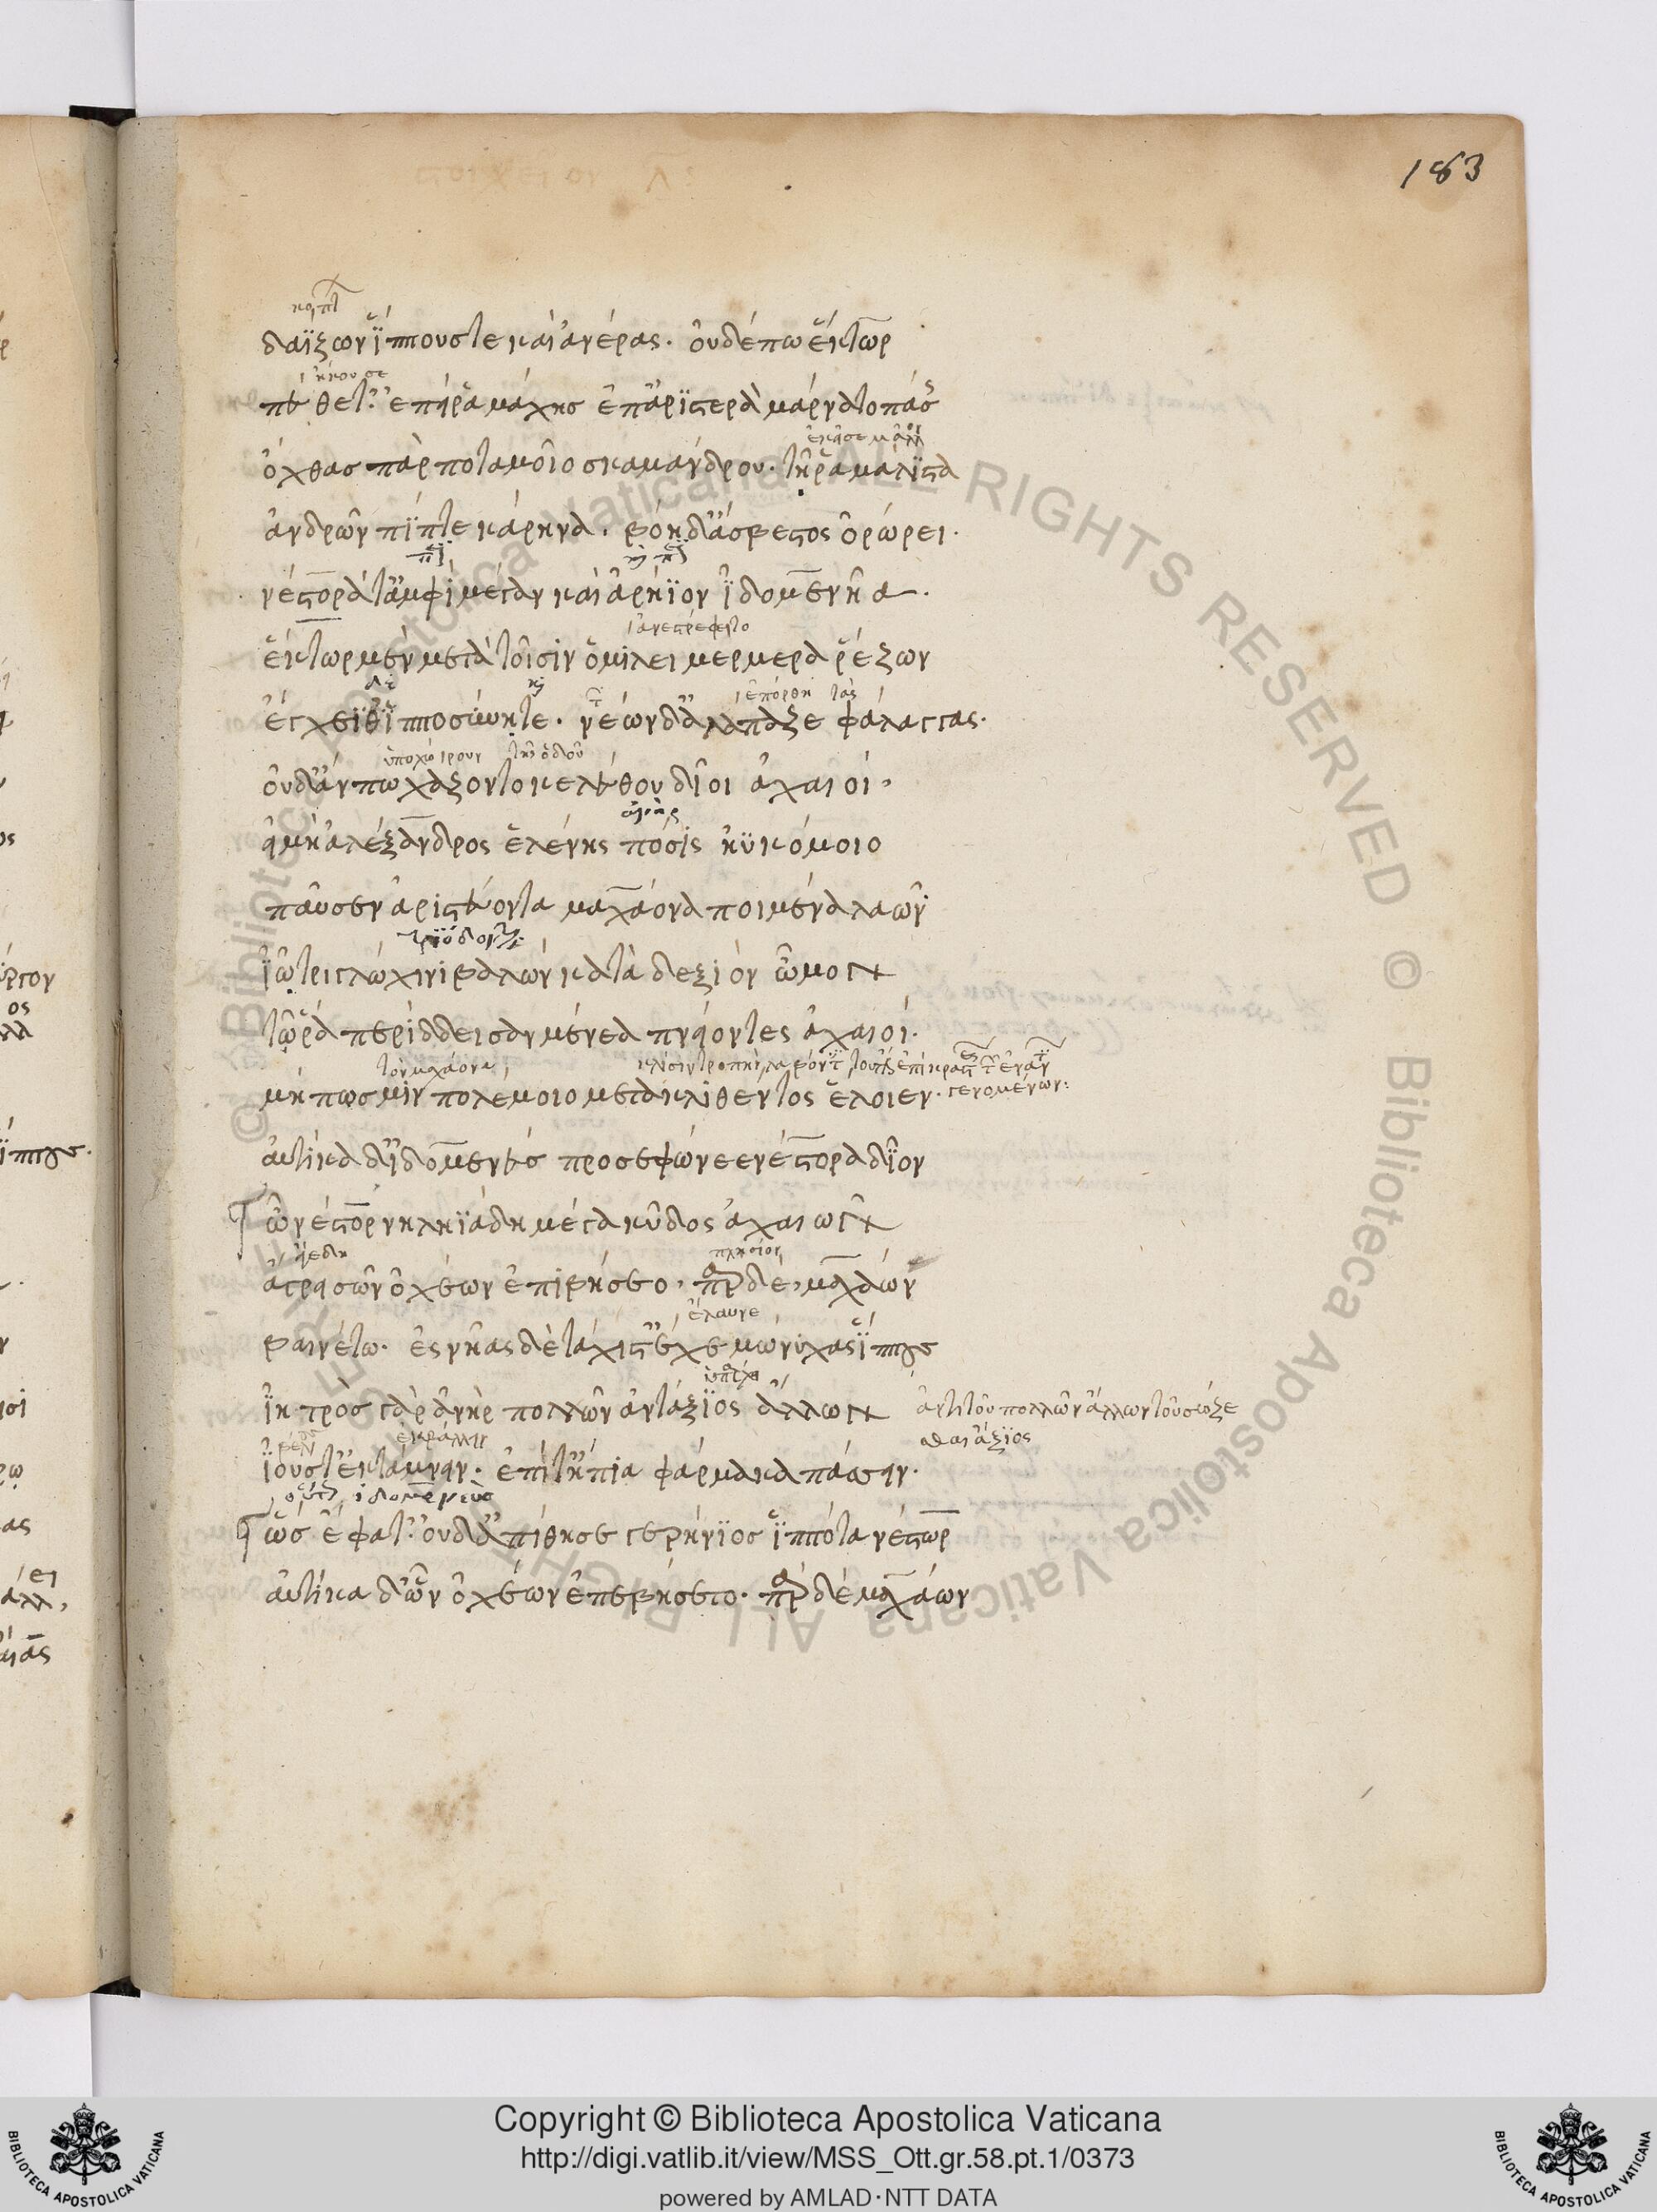 183
δαΐζων ἵππους τε καὶ ἀνέρας. οὐδέ πω ἕκτωρ
ἤκουσε
πεύθετ' ἐπεί ῥα μάχης ἐπ' ἀριστερὰ μάρνατο πάσης
ὄχθας πὰρ ποταμοῖο σκαμάνδρου. τῇ ῥα μάλιστα
ἀνδρῶν πῖπτε κάρηνα. βοὴ δ' ἄσβεστος ὀρώρει.
νέστορά τ' ἀμφὶ μέγαν καὶ ἀρήϊον ἰδομενῆα.
ἀνεστρέφετο
ἕκτωρ μὲν μετὰ τοῖσιν ὁμίλει μερμερα ῥέζων
ἐπόρθει τὰς
ἔγχεΐ θ' ἱπποσύνῃ τε. νέων δ' ἀλάπαξε φάλαγγας.
ὑπεχώρουν τῆς ὁδοῦ
οὐδ' ἄν πω χάζοντο κελεύθου δῖοι ἀχαιοί,
ἀνὴρ
εἰ μὴ ἀλέξανδρος ἑλένης πόσις ἠϋκόμοιο
παῦσεν ἀριστεύοντα μαχάονα ποιμένα λαῶν
ἰῷ τριγλώχινι βαλὼν κατὰ δεξιὸν ὦμον
τῷ ῥα περίδδεισαν μένεα πνείοντες ἀχαιοί.
τὸν μαχάονα
γενομένων:
μή πως μιν πολεμοιο μετακλιθέντος ἕλοιεν.
αὐτίκα δ' ἰδομενεὺς προσεφώνεε νέστορα δῖον
ὦ νέστορ νηληϊάδη μέγα κῦδος ἀχαιῶν
πλησίον
ἄγρει σῶν ὀχέων ἐπιβήσεο, παρ δὲ, μαχάων
ἔλαυνε
βαινέτω. ἐς νῆας δὲ τάχιστ' ἔχε μώνυχας ἵππους
ἰητρὸς γὰρ ἀνὴρ πολλῶν ἀντάξιος ἄλλων
ἀντὶ τοῦ πολλῶν ἄλλων τοῦ σώζε
σθαι ἄξιος
ἰούς τ' ἐκτάμνειν. ἐπί τ' ἤπια φάρμακα πάσσειν.
ἰδομενεὺς
ὣς ἔφατ' οὐδ' ἀπίθησε γερήνιος ἱππότα νέστωρ
αὐτίκα δ' ὧν ὀχέων ἐπεβήσετο. παρ δὲ μαχάων
Copyright © Biblioteca Apostolica Vaticana
http://digi.vatlib.it/view/MSS_Ott.gr.58.pt.1/0373
powered by AMLAD·NTT DATA